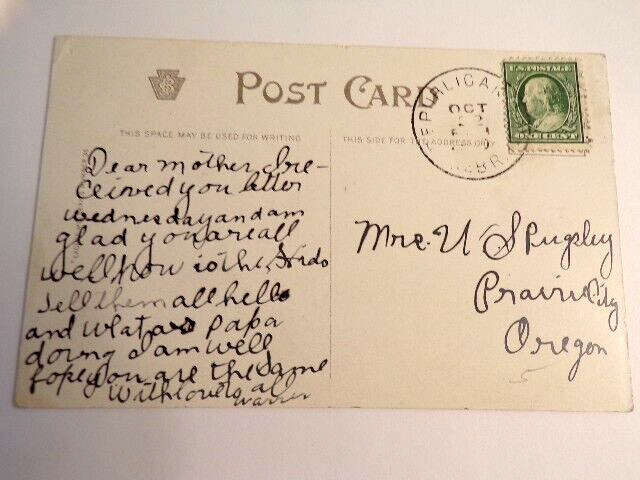 POST CARD
THIS SPACE MAY BE USED FOR WRITING
THIS SIDE FOR THE ADDRESS ONLY
EPUBLICAN
OCT
NEBR
U.S. POSTAGE
ONE CENT
Dear mother I re-
ceived you letter
wednesday and am
glad you are all
well how is the
tell them all hello
and what are Papa
doing I am well
hope you are the same
With love to all
Warren
Mrs. U S Pugsley
Prairie City
Oregon